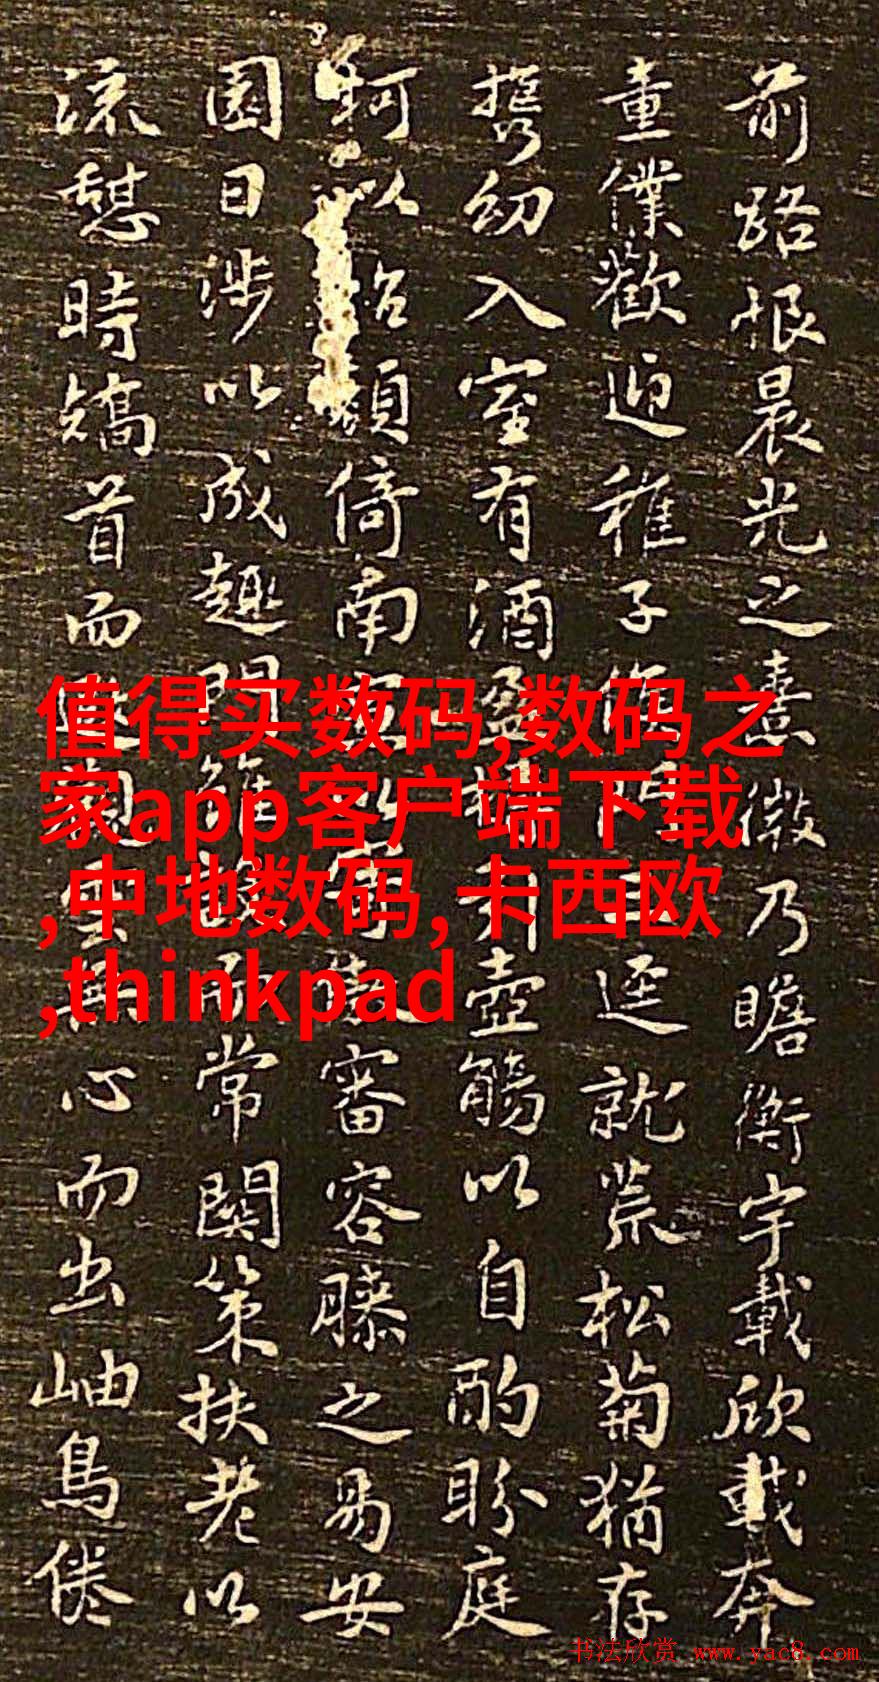 前路恨晨光之熹微乃瞻衡宇載欣載奔
童僕歡迎稚子候門三逕就荒松菊猶存
携幼入室有酒盈樽引壺觴以自酌盼庭
柯以怡顏倚南窗以寄傲審容膝之易安
園日涉以成趣門雖設而常關策扶老以
流憩時矯首而遐觀雲無心而出岫鳥倦
值得买数码,数码之
家app客户端下载
,中地数码,卡西欧
,thinkpad
书法欣赏 www.yac8.com